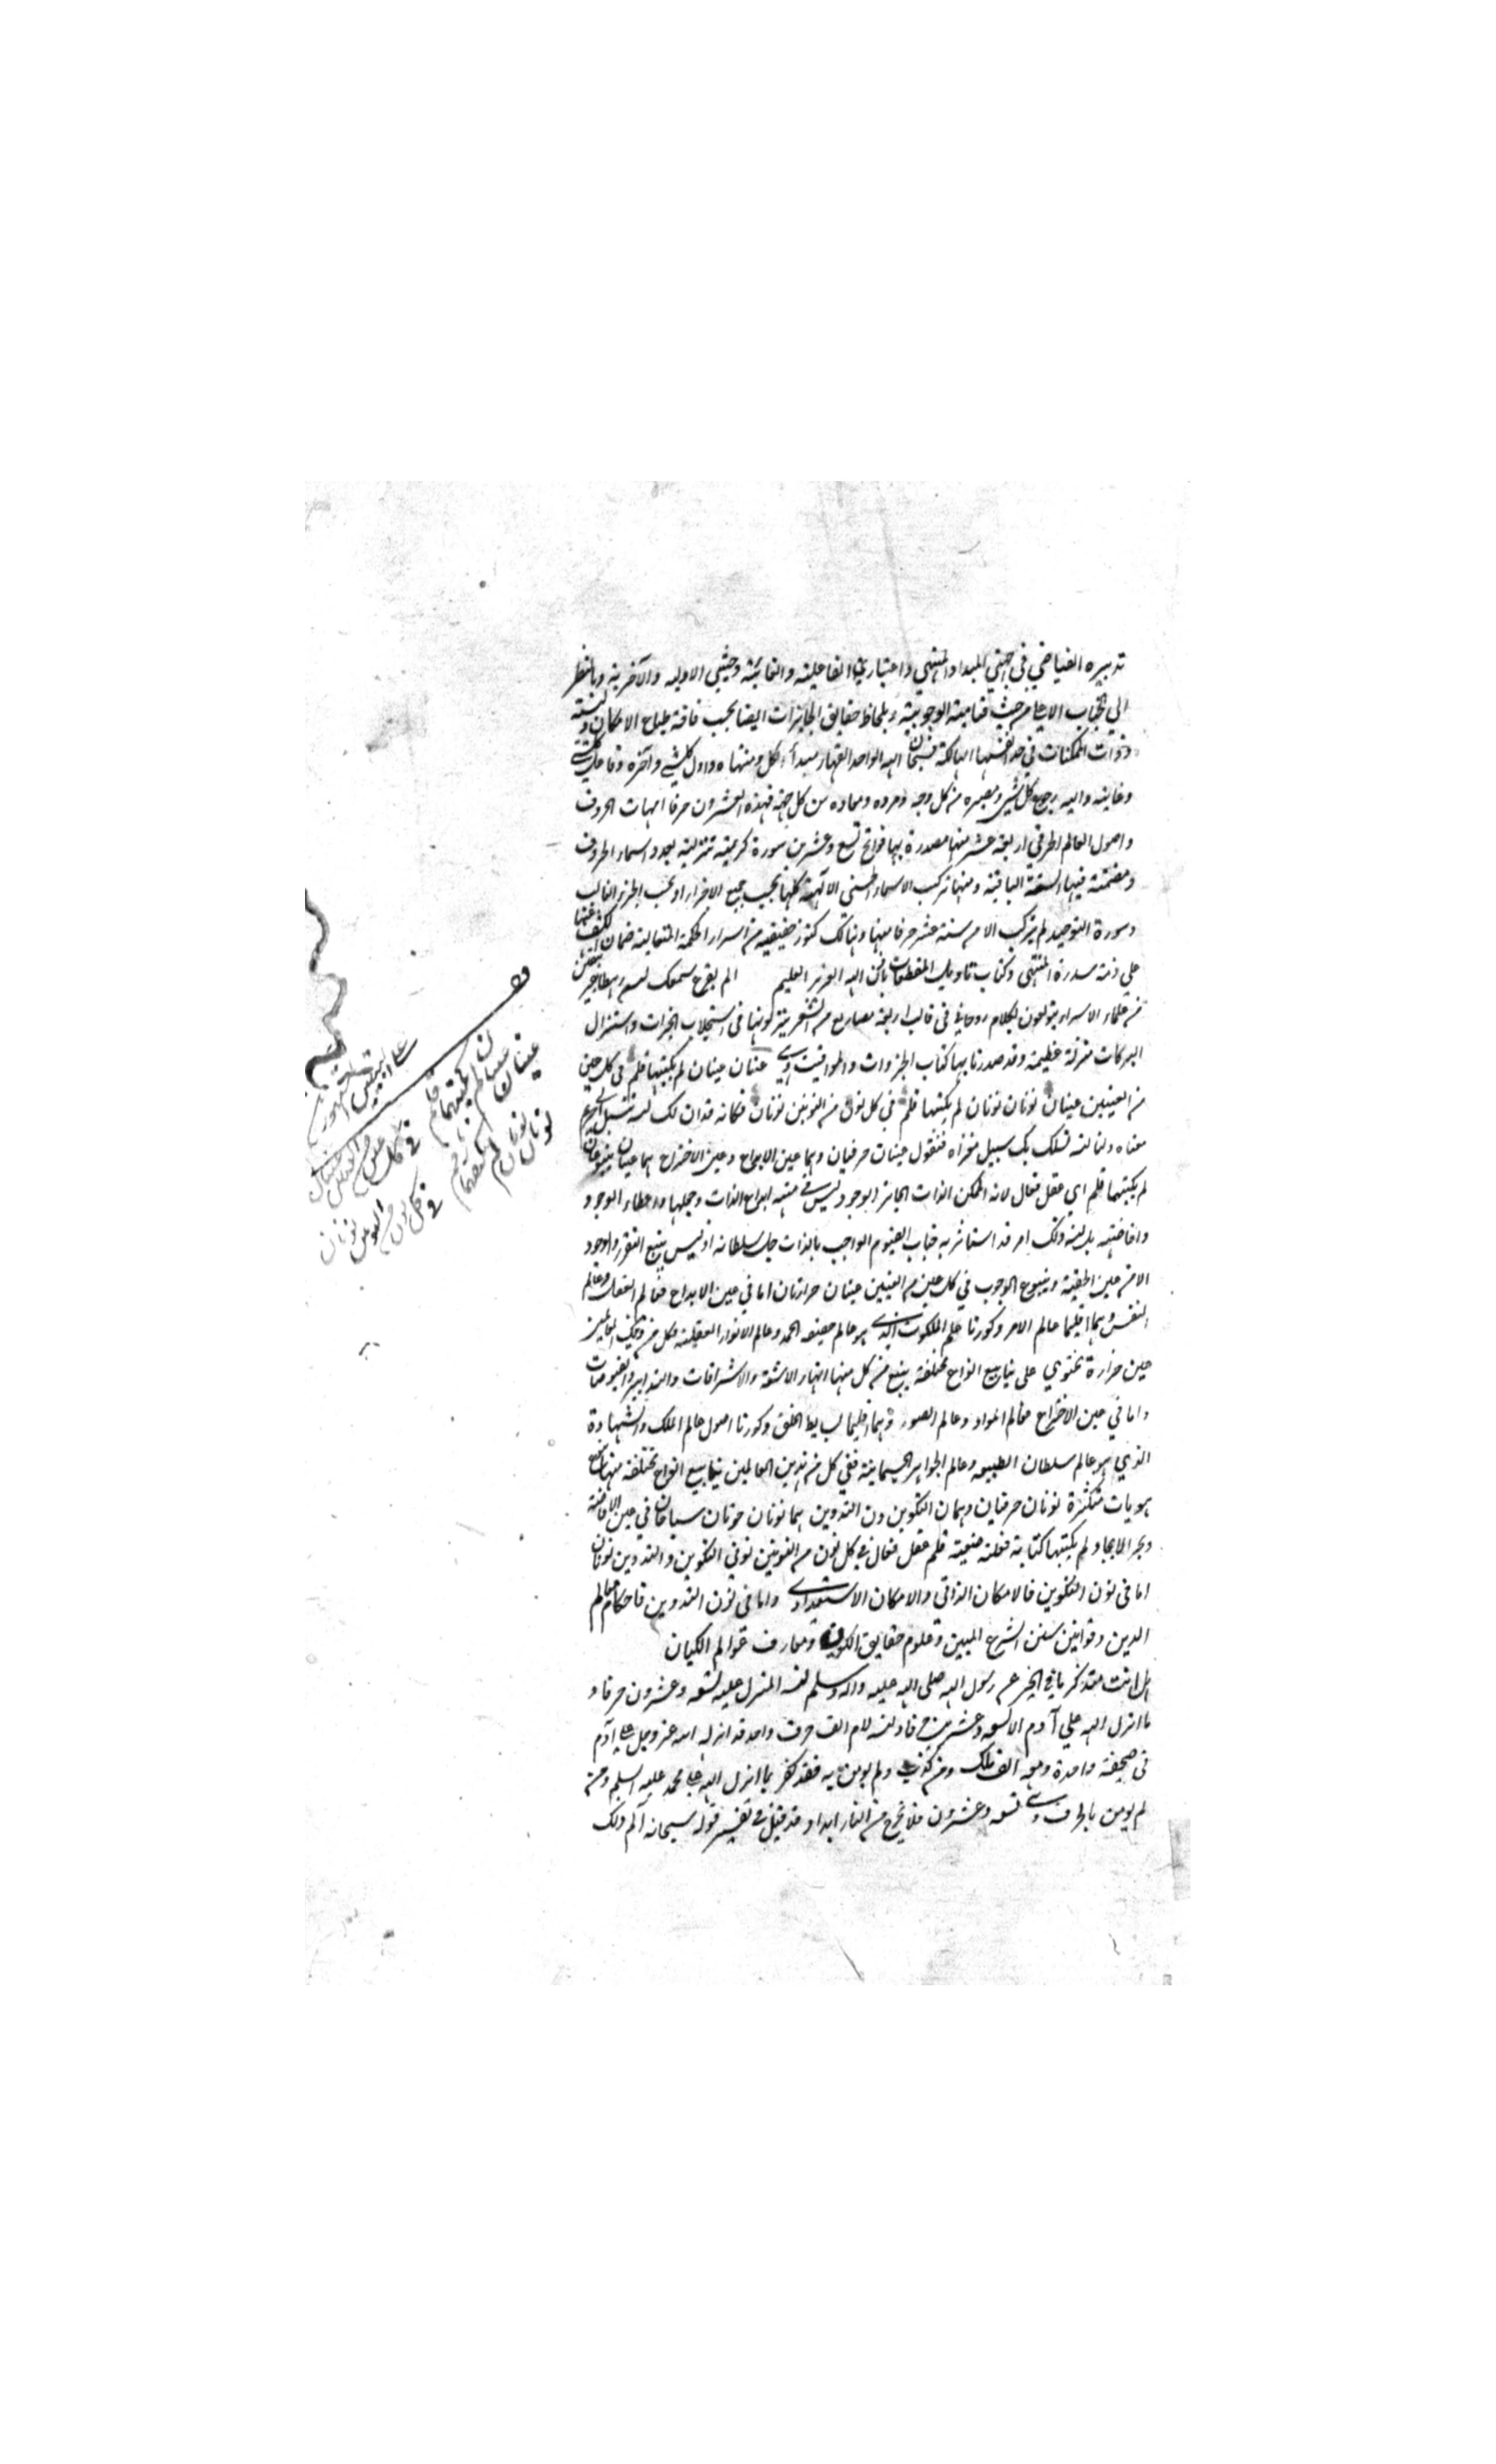 تدبيره الفياضي في جهتي المبدا والمنتهي واعتباري الفاعلية والغائية وحيثيتي الاولية والآخرية وبالنظر
الي الجناب الاعلي من حيث قيامية الوجوبية وبلحاظ حقايق الجايزات ايضا بحسب فاقة طباع الامكان و ليسية
ذوات الممكنات في حد انفسها الهالكة فسبحان الله الواحد القهار مبدأ كل ومنتهاه واول كل شي وآخره وفاعل كل شي
وغايته واليه يرجع كل شي ومصيره من كل وجه ومرده ومعاده من كل جهة فهذه العشرون حرفا امهات الحروف
واصول العالم الحرفي اربعة عشر منها مصدرة بها فواتح تسع وعشرين سورة كريمة تنزيلية بعدد اسماء الحروف
ومضمنة فيها الستة الباقية ومنها تركب الاسماء الحسني الآلهية كلها بحسب جميع الاجزاء او بحسب الجزء الغالب
وسورة التوحيد لم يتركب الا من ستة عشر حرفا منها وهنالك كنوز خفية من اسرار الحكمة المتعالية ضمان الكشف عنها
علي ذمة سدرة المنتهي وكتاب تاويل المقطعات باذن الله العزيز العليم الم يقرع سمعك
من علماء الاسرار يتولعون بكلام روحاني في قالب اربعة مصاريع من الشعر ينزلونها في استجلاب الخيرات واستنزال
البركات منزلة عظيمة وقد صدرنا بها كتاب الجذوات والمواقيت وهي عينان عينان لم يكتبهما قلم في كل عين
من العينين عينان نونان نونان لم يكتبهما قلم في كل نون من النونين نونان فكانه قدان لك ان
معناه ولنا ان نسلك بك سبيل مغزاه فنقول عينان حرفيان وهما عين الابداع وعين الاختراع هما عينان ينبوعان
لم يكتبهما قلم اي عقل فعال لان الممكن الذات الجايز الوجود ليس في منته ابداع الذات وجعلها واعطاء الوجود
وافاضته بل ان ذلك امر قد استاثر به جناب القيوم الواجب بالذات جل سلطانه اذ ليس ينبع التقرر والوجود
الا من عين الحقيقة وينبوع الوجوب في كل عين من العينين عينان خرارتان اما في عين الابداع فعالم العقل وعالم
النفس وهما اقليما عالم الامر وكورتا عالم الملكوت الذي هو عالم الحمد وعالم الانوار العقلية وكل من العالمين
عين خرارة تحتوي علي ينابيع انواع مختلفة ينبع من كل منها انهار الاشعة والاشراقات والتدابير والفيوضات
واما في عين الاختراع فعالم المواد وعالم الصور وهما اقليما بسايط الخلق وكورتا اصول عالم الملك والشهادة
الذي هو عالم سلطان الطبيعة وعالم الجواهر الجسمانية ففي كل من هذين العالمين ينابيع انواع مختلفة منها تنبع
هويات متكثرة نونان حرفيان وهما نون التكوين ونون التدوين هما نونان حوتان سباحان في عين الافاضة
وبحر الايجاد لم يكتبهما كتابة فعلية صنعية قلم عقل فعال في كل نون من النونين نوني التكوين والتدوين نونان
اما في نون التكوين فالامكان الذاتي والامكان الاستعدادي واما في نون التدوين فاحكام معالم
الدين وقوانين سنن الشرع المبين وعلوم حقايق الكون ومعارف عوالم الكيان
هل انت متذكر ما في الخبر عن رسول الله صلي الله عليه واله وسلم ان المنزل عليه تسعة وعشرون حرفا و
ما انزل الله علي آدم الا تسعة وعشرين حرفا وان لام الف حرف واحد قد انزله الله عز وجل علي آدم
في صحيفة واحدة ومعه الف ملك ومن كذب ولم يومن به فقد كفر بما انزل الله علي محمد عليه السلم ومن
لم يومن بالحروف وهي تسعة وعشرون فلا يخرج من النار ابدا وقد قيل في تفسير قوله سبحانه آلم ذلك
عينان عينان لم يكتبهما قلم
في كل عين من العينين عينان
نونان نونان لم يكتبهما قلم
في كل نون من النونين نونان